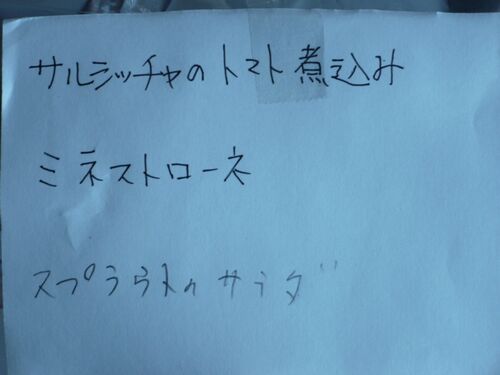 サルシッチャのトマト煮込み
ミネストローネ
スプラウトのサラダ